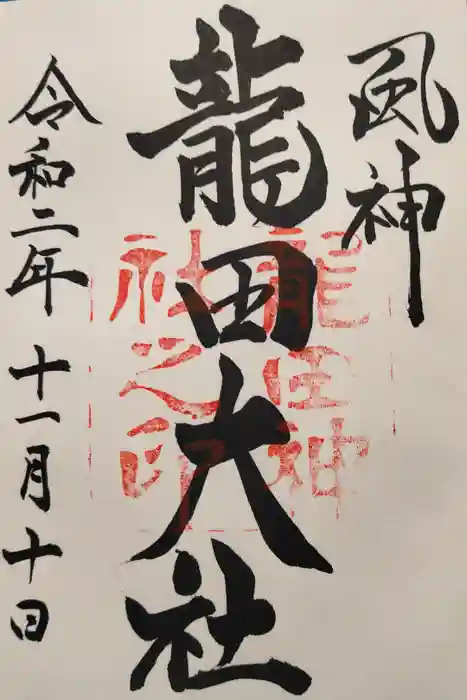 風神
龍田大社
龍田神
社之印
令和二年十一月十日